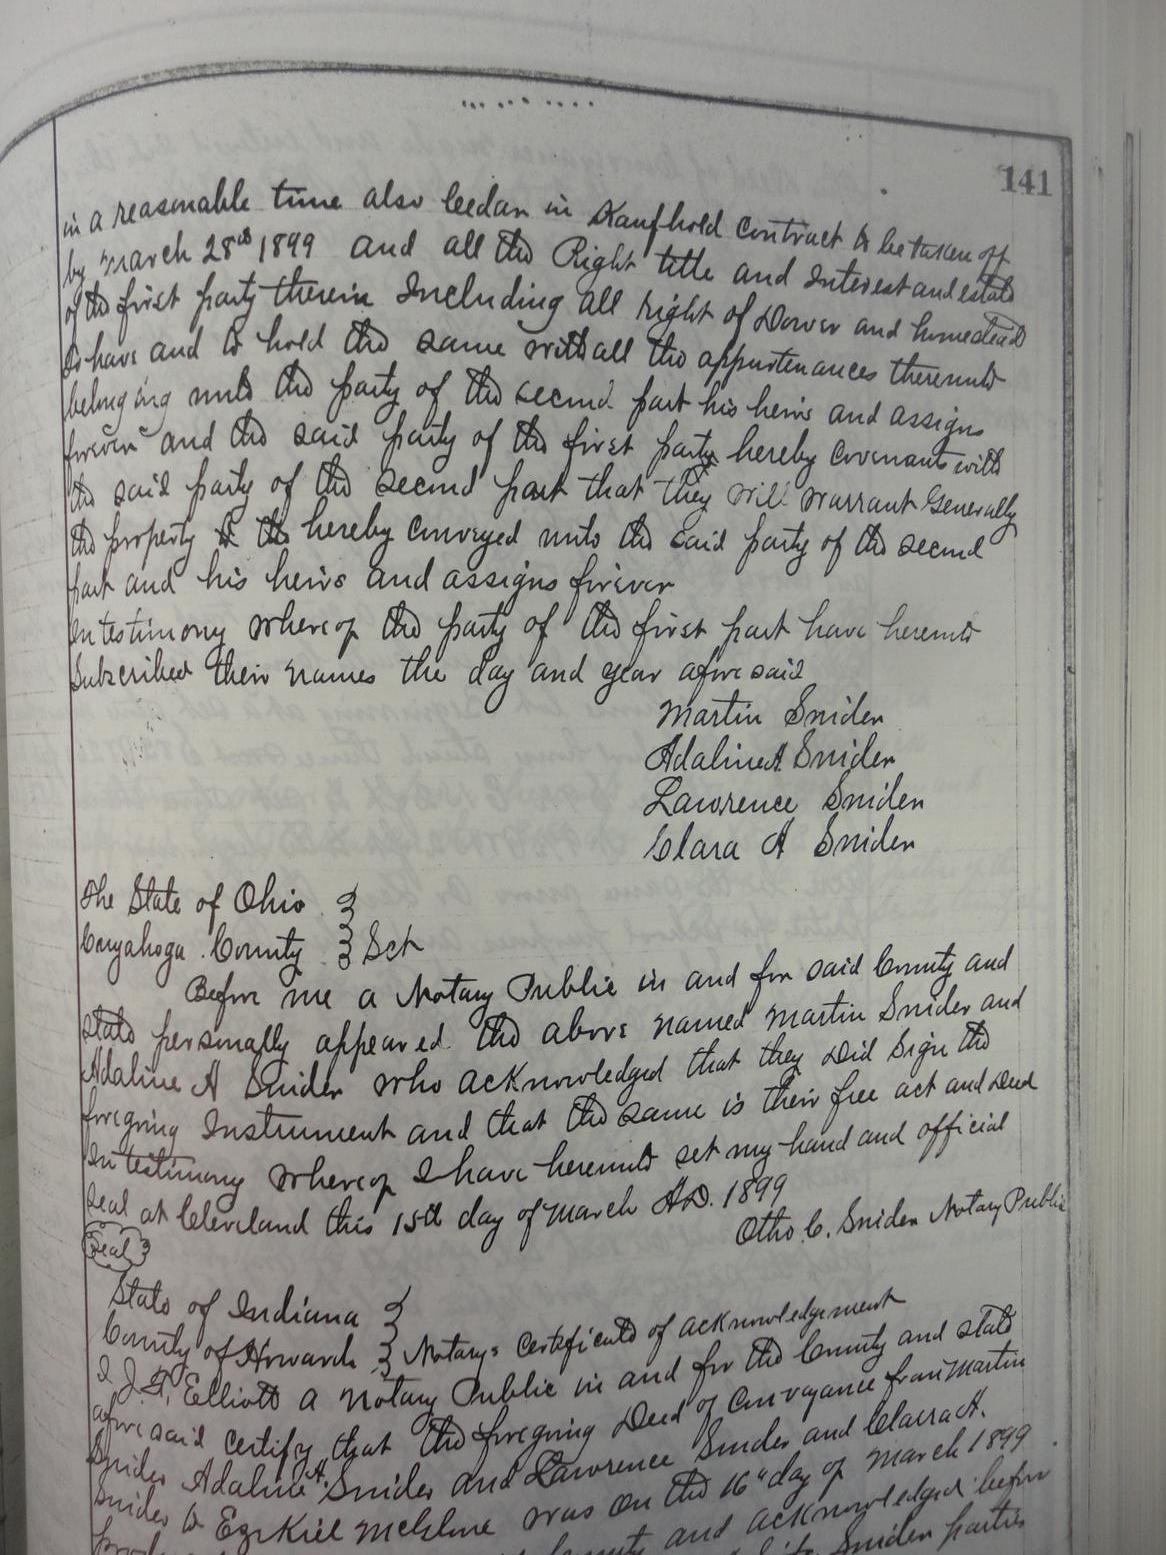 141
in a reasonable time also Cedar in Kaufhold Contract to be taken off
by March 28th 1899 and all the Right title and Interest and estate
of the first party therein Including all right of Dower and homestead
to have and to hold the same with all the appurtenances thereunto
belonging unto the party of the second part his heirs and assigns
forever and the said party of the first party hereby covenants with
the said party of the second part that they will warrant Generally
the property hereby conveyed unto the said party of the second
part and his heirs and assigns forever
In testimony whereof the party of the first part have hereunto
Subscribed their names the day and year aforesaid
Martin Snider
Adaline A Snider
Lawrence Snider
Clara A Snider
The State of Ohio
Cuyahoga County } Sct
Before me a Notary Public in and for said County and
State personally appeared the above named Martin Snider and
Adaline A Snider who acknowledged that they did Sign the
foregoing Instrument and that the same is their free act and Deed
In testimony whereof I have hereunto set my hand and official
seal at Cleveland this 15th day of March A.D. 1899
Otho C. Snider Notary Public
Seal
State of Indiana
County of Howard } Notarys Certificate of acknowledgement
I J. F. Elliott a Notary Public in and for the County and state
aforesaid certify that the foregoing Deed of Conveyance from Martin
Snider Adaline A Snider and Lawrence Snider and Clara A.
Snider to Ezekiel was on the 16" day of March 1899
County and acknowledged before
Snider parties